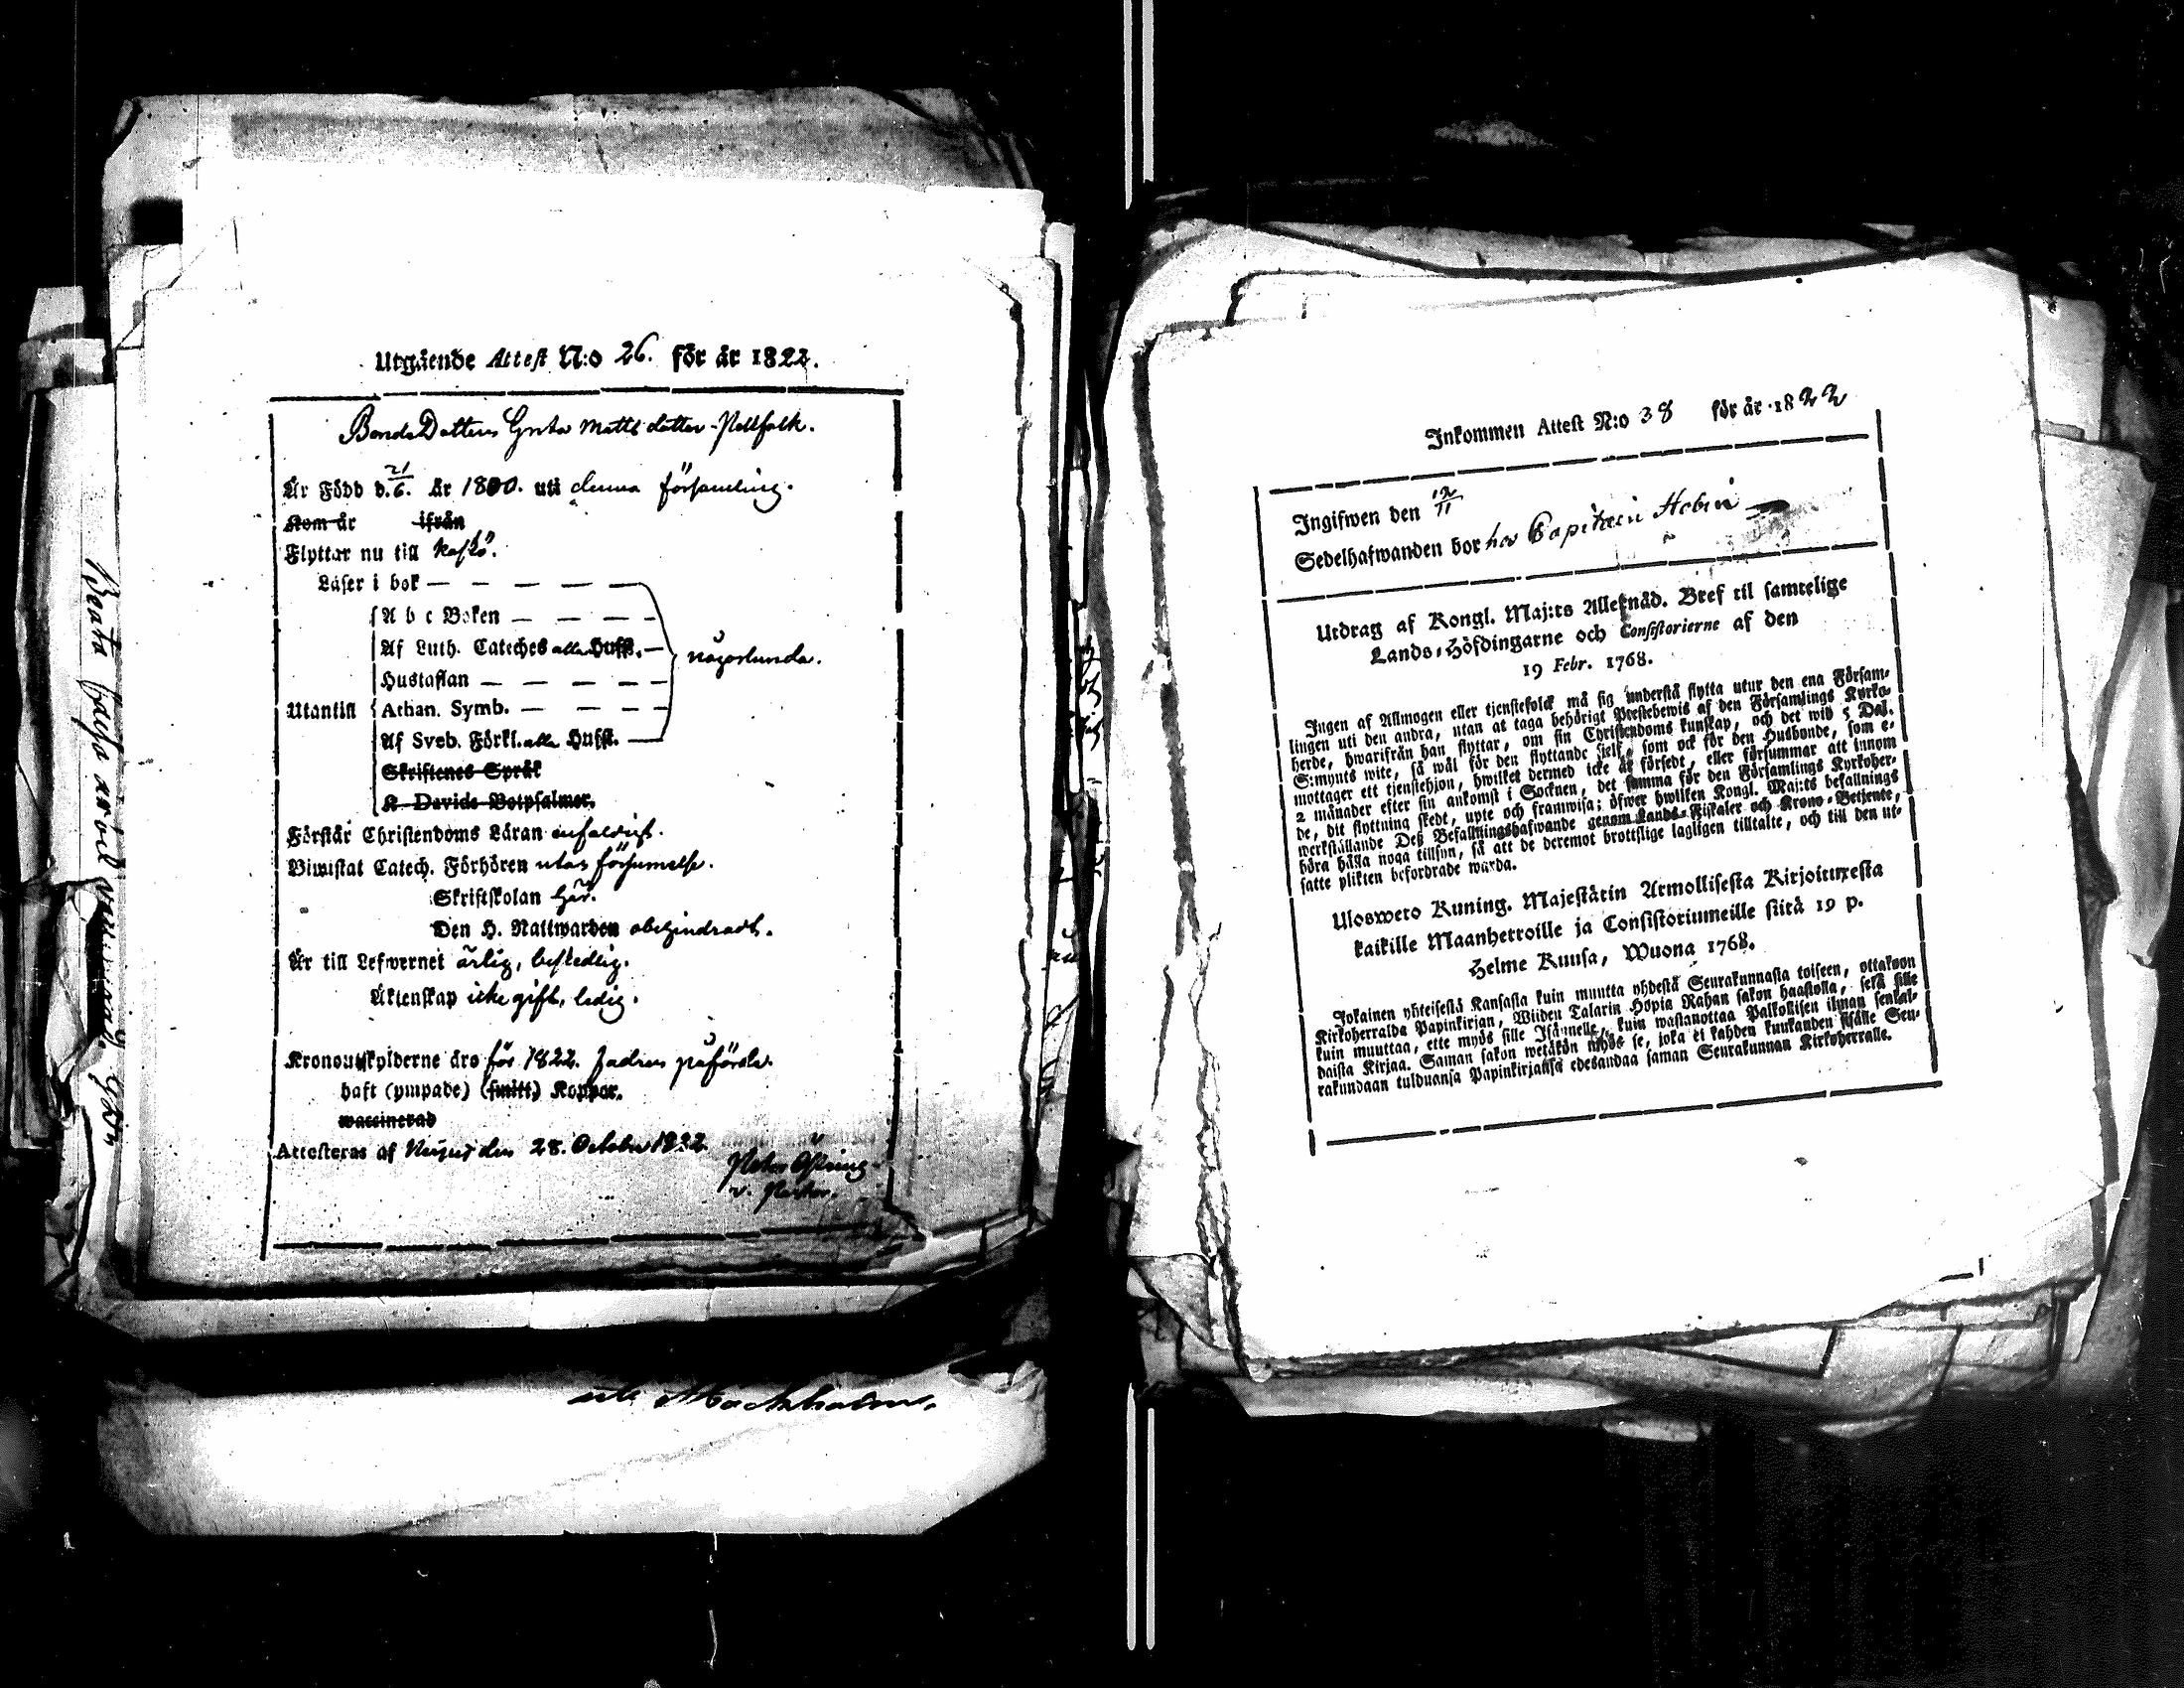 Utgående Attest N:o 26. för år 1822.
Bonde Dottern Greta Matts dotter Pellfolk.
Är Född d. 21/6. År 1800. uti denna församling.
Kom år ifrån
Flyttar nu till Kaskö.
Läser i bok — — — — —
A b c Boken — — — —
Af Luth. Cateches alla Hufst. —
någorlunda.
Hustaflan — — — — —
Utantill Athan. Symb. — — — — —
Af Sveb. Förkl. alla Hufst. —
Skriftenes Språk
K. Davids Botpsalmer.
Förstår Christendoms Läran enfaldigt.
Biwistat Catech. Förhören utan försummelse.
Skriftskolan här.
Den H. Nattwarden obehindradt.
Är till Lefwernet ärlig, beskedlig.
Äktenskap icke gift, ledig.
Kronoutskylderne äro för 1822. påförde.
haft (ympade) (smitt) Koppor.
waccinerad
Attesteras af den 28. October 1822
Petter
v. Pastor.
Beata
Stockholm.
Inkommen Attest N:o 38 för år 1822
Ingifwen den 12/11
Sedelhafwanden bor hos Capitain
Utdrag af Kongl. Maj:ts Allernåd. Bref til samtelige
Lands-Höfdingarne och Consistorierne af den
19 Febr. 1768.
Ingen af Allmogen eller tjenstefolck må sig understå flytta utur den ena Försam-
lingen uti den andra, utan at taga behörigt Prestebewis af den Församlings Kyrko-
herde, hwarifrån han flyttar, om sin Christendoms kunskap, och det wid 5 Dal.
S:mynts wite, så wäl för den flyttande sielf, som ock för den Husbonde, som e-
mottager ett tjenstehjon, hwilket dermed icke är försedt, eller försummar att innom
2 månader efter sin ankomst i Socknen, det samma för den Församlings Kyrkoher-
de, dit flyttning skedt, upte och framwisa; öfwer hwilken Kongl. Maj:ts befallnings
werkställande Deß Befallningshafwande genom Lands-Fiskaler och Krono-Betjente,
böra hålla noga tillsyn, så att de deremot brottslige lagligen tilltalte, och till den ut-
satte plikten befordrade warda.
Uloswero Kuning. Majestätin Armollisesta Kirjoituxesta
kaikille Maanherroille ja Consistoriumeille siitä 19 p.
Helme Kuusa, Wuona 1768.
Jokainen yhteisestä Kansasta kuin muutta yhdestä Seurakunnasta toiseen, ottakoon
Kirkoherralda Papinkirjan, Wiiden Talarin Hopia Rahan sakon haastolla, sekä sille
kuin muuttaa, ette myös sille Isännelle, kuin wastanottaa Palkollisen ilman senkal-
daista Kirjaa. Saman sakon wetäkön myös se, joka ei kahden kuukauden sisälle Seu-
rakundaan tulduansa Papinkirjaansa edesandaa saman Seurakunnan Kirkoherralle.